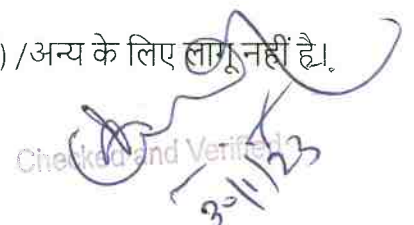 ) /अन्य के लिए लागू नहीं है।
Checked and Verified
30/1/23